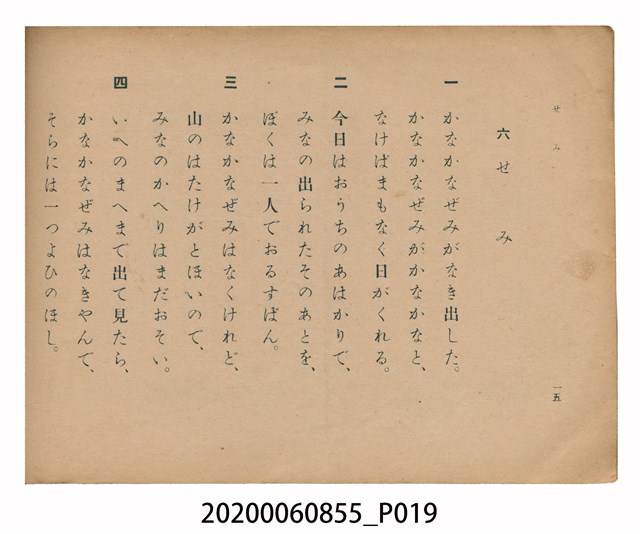 せみ
一五
六 せみ
一 かなかなぜみがなき出した。
かなかなぜみがかなかなと、
なけばまもなく日がくれる。
二 今日はおうちのあはかりで、
みなの出られたそのあとを、
ぼくは一人でおるすばん。
三 かなかなぜみはなくけれど、
山のはたけがとほいので、
みなのかへりはまだおそい。
四 いへのまへまで出て見たら、
かなかなぜみはなきやんで、
そらには一つよひのほし。
20200060855_P019